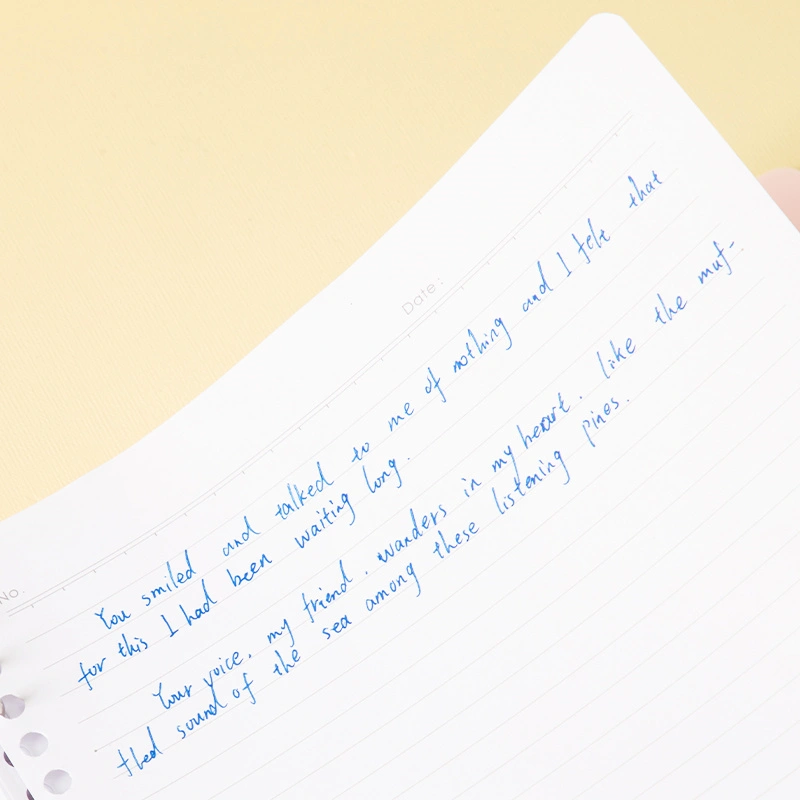 No.
Date:
You smiled and talked to me of nothing and I felt that
for this I had been waiting long.
Your voice, my friend, wanders in my heart, like the muf-
fled sound of the sea among these listening pines.